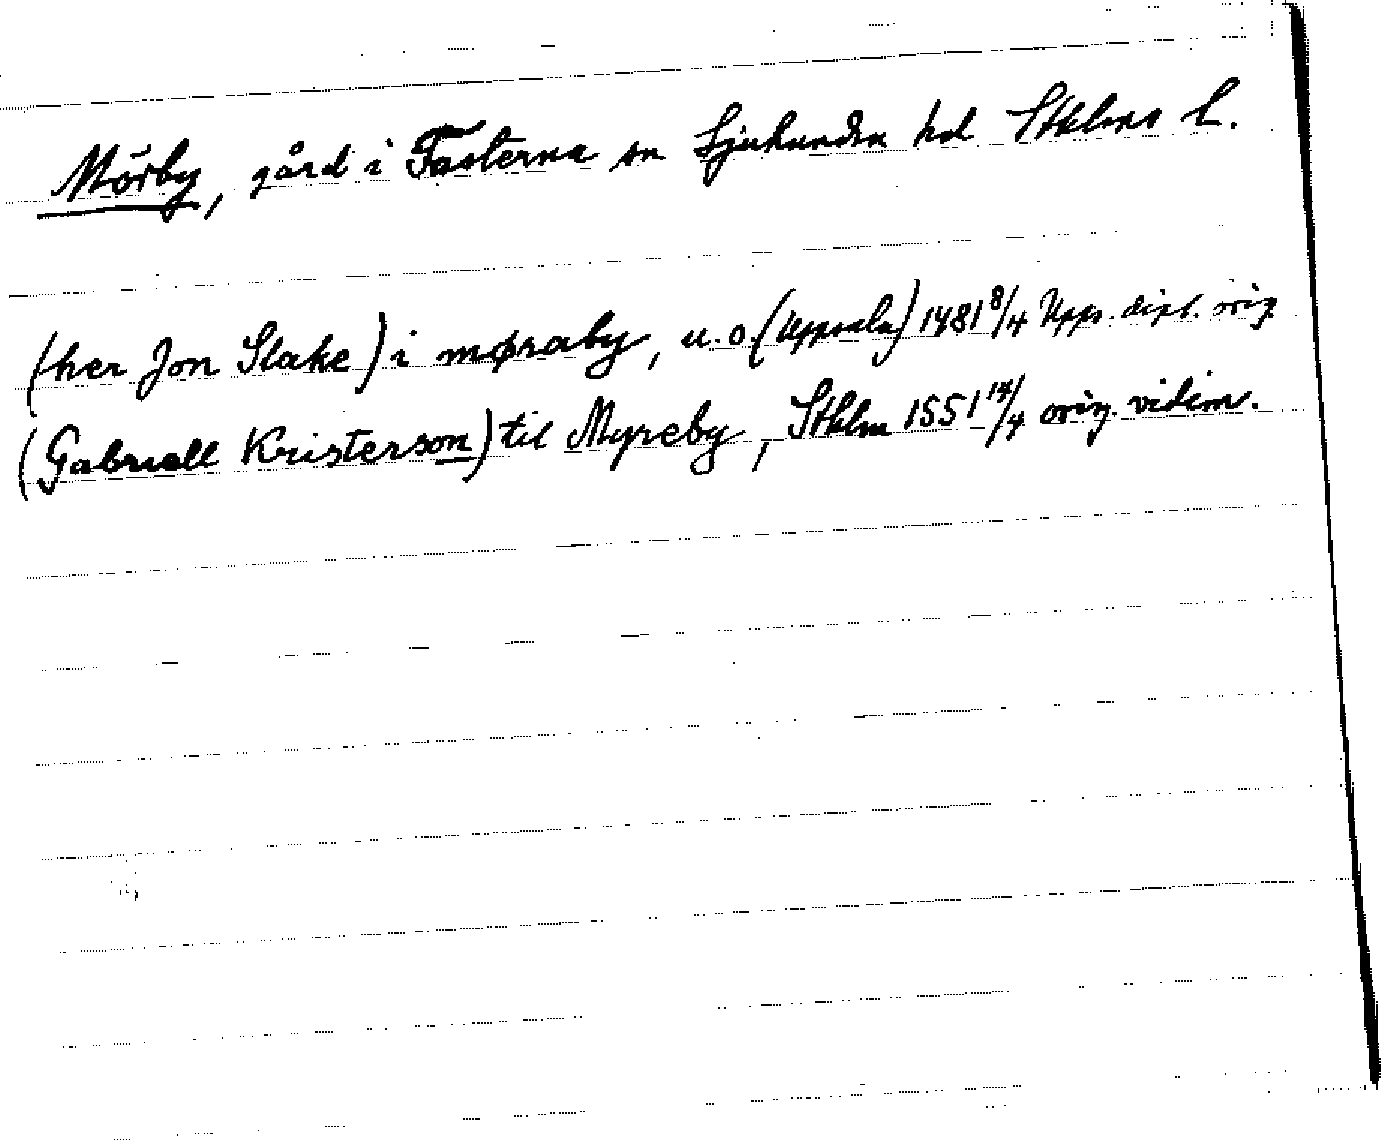 Mörby, gård i Fasterna sn Sjuhundra hd Sthlms l.
(her Jon Slake) i møraby, u.o. (Uppsala) 1481 8/4 Upps. dipl. orig.
(Gabriell Kristerson) til Myreby, Sthlm 1551 14/4 orig. vidim.